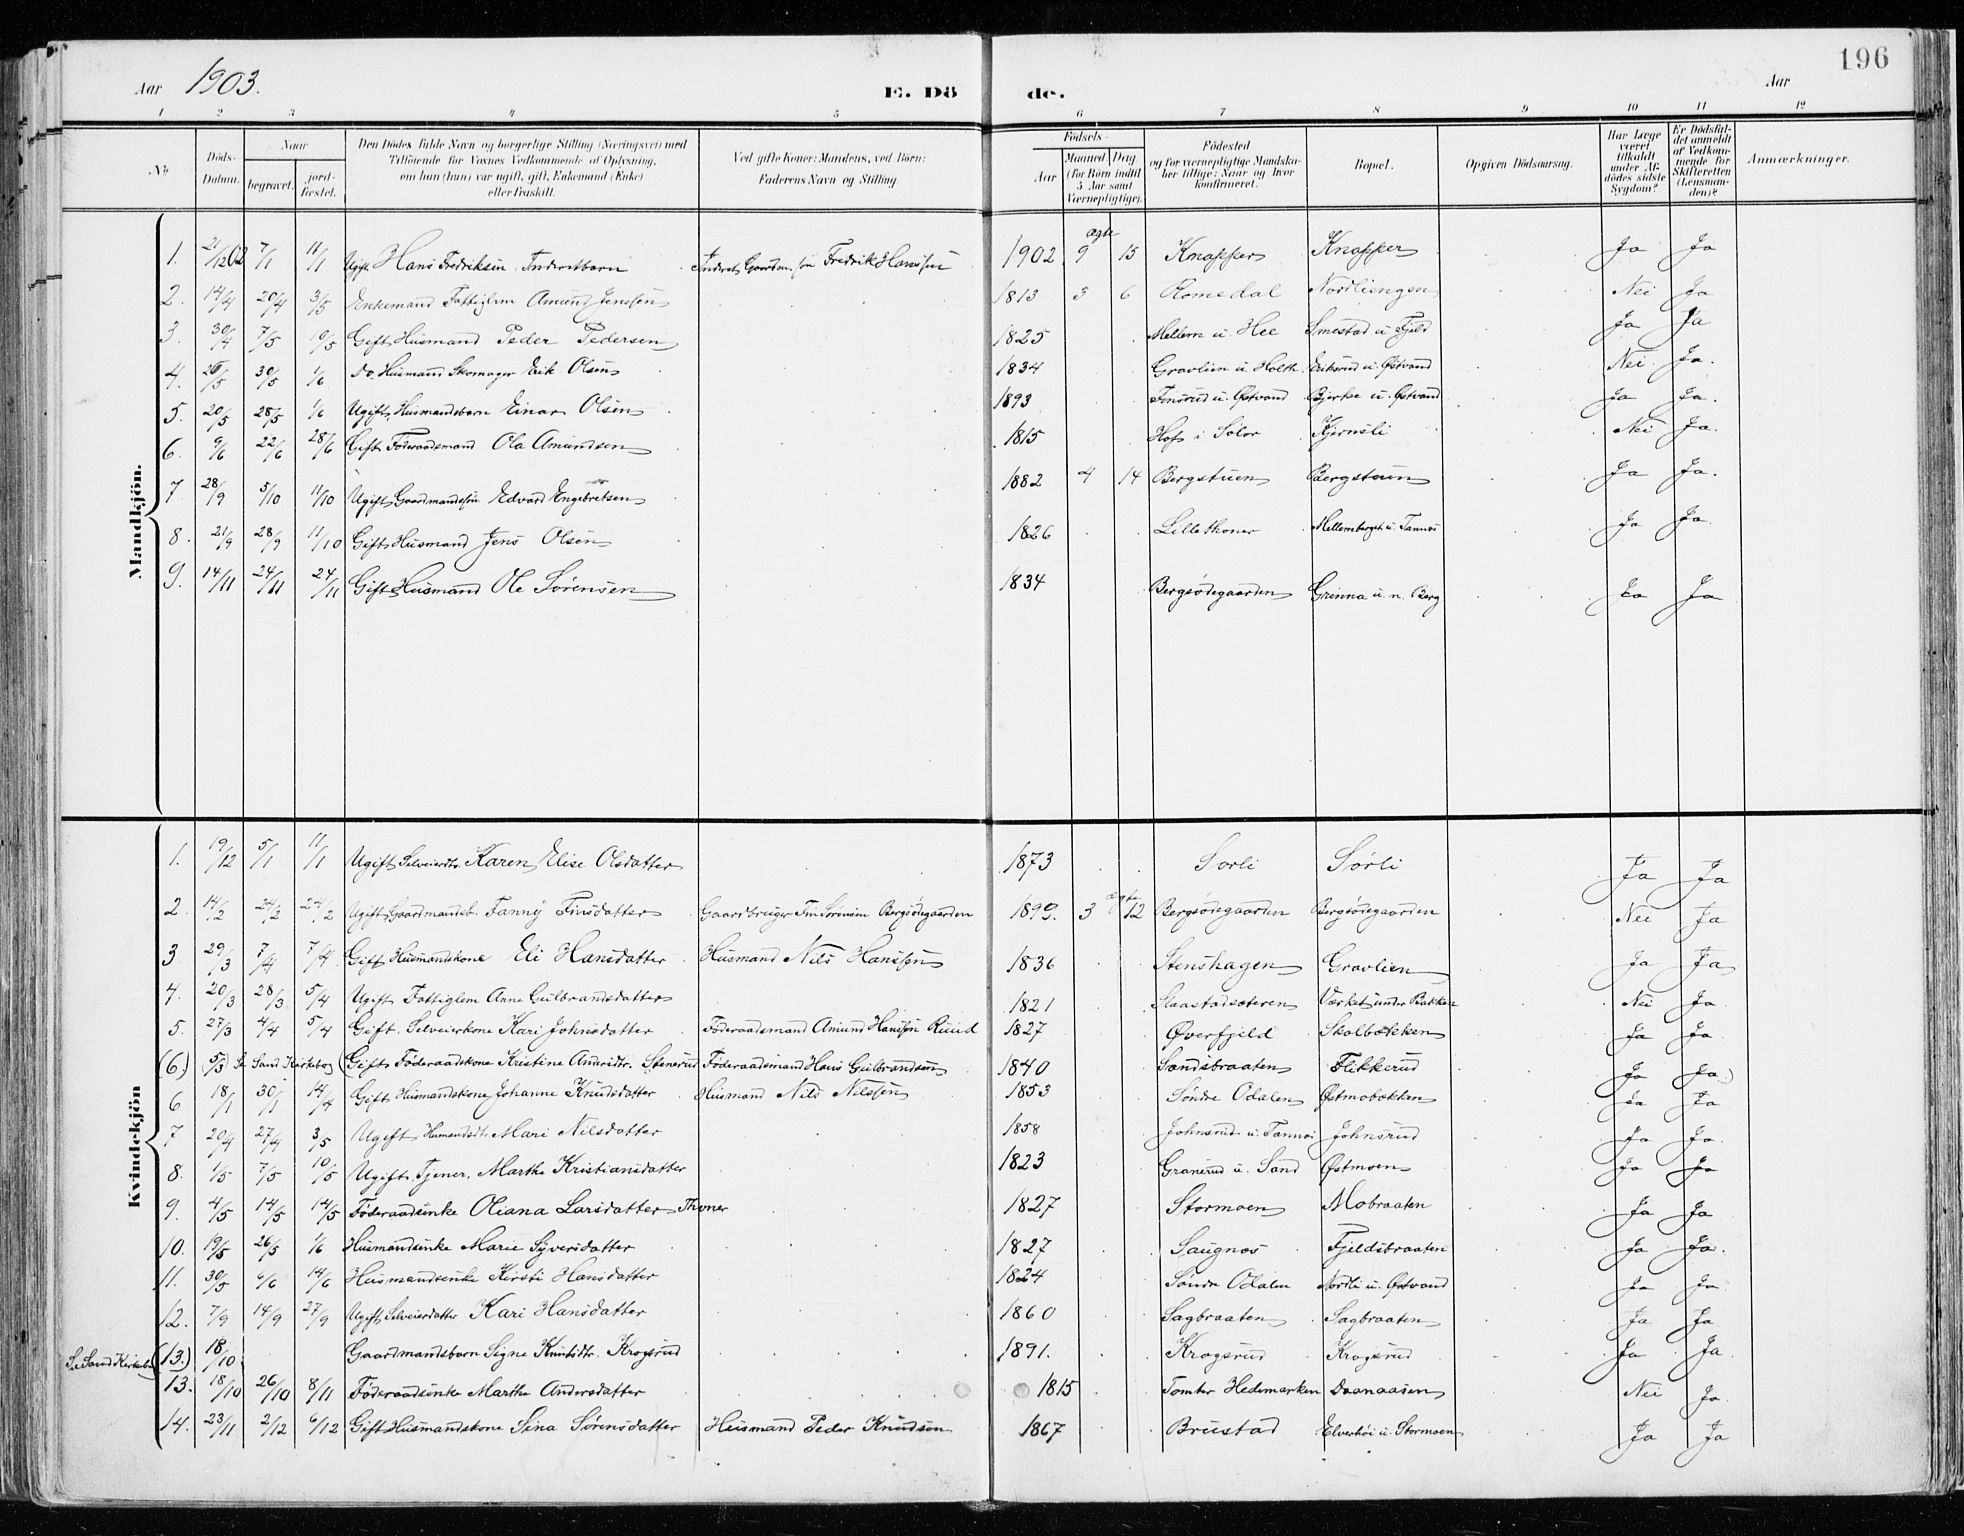 196
Aar 1903. E. Dö de. Aar
1 2 3 4 5 6 7 8 9 10 11 12
No Döds-Datum. Naar begravet. jordfæstet. Den Dödes fulde Navn og borgerlige Stilling (Næringsvei) med Tilföiende for Voxnes Vedkommende af Oplysning, om han (hun) var ugift, gift, Enkemand (Enke) eller fraskilt. Ved gifte Koner: Mandens, ved Börn: Faderens Navn og Stilling. Födsels- Aar Maaned Dag (for Börn indtil 5 Aar samt Værnepligtige). Födested og for værnepligtige Mandskaber tillige: Naar og hvor konfirmeret. Bopæl. Opgiven Dödsaarsag. Har Læge været tilkaldt under Afdödes sidste Sygdom? Er Dödsfaldet anmeldt af Vedkommende for Skifteretten (Lensmanden)? Anmærkninger.
Mandkjön.
1. 21/12 02 7/1 11/1 Ugift Hans Fredriksen, Inderstbarn Inderst, Gaardm.søn Fredrik Hanssen 1902 9 ægte 15 Knapper Knapper Ja Ja
2. 14/4 20/4 3/5 Enkemand Fattiglem Amund Jenssen 1813 3 6 Romedal Nordliengen Nei Ja
3. 30/4 7/5 10/5 Gift Husmand Peder Pedersen 1825 Mellem u. Hee Smestad u. Fjeld Ja Ja
4. 26/5 30/5 1/6 Do. Husmann Skomager Erik Olsen 1834 Gravlien u. Holth Eriksrud u. Østvand Nei Ja.
5. 20/5 28/5 1/6 Ugift, Husmandsbarn Einar Olsen 1893 Finsrud u. Østvand Bjerke u. Østvand Ja Ja.
6. 9/6 22/6 28/6 Gift Föderaadsmand Ola Amundsen 1815 Hof i Solør Kjernsli Nei Ja.
7 28/9 5/10 11/10 Ugift Gaardmandssøn Edvard Engebretsen 1882 4 14 Bergstuen Bergstuen Ja Ja.
8. 21/9 28/9 11/10 Gift Husmand Jens Olsen 1826 Lillethoner Mellemberget u. Tannæs Ja Ja.
9. 14/11 24/11 24/11 Gift Husmand Ole Sørensen 1834 Bergsødegaarden Grinna u. n. Berg Ja Ja
Kvindekjön
1. 19/12 5/1 11/1 Ugift Selveierdtr. Karen Elise Olsdatter 1873 Sorli Sørli Ja Ja
2. 14/2 24/2 24/2 Ugift, Gaardmandsb. Fanny Finsdatter Gaardbruger Fin Sørensen Bergsødegaarden 1899. 3 ægte 12 Bergsødegaarden Bergsødegaarden Nei Ja
3 29/3 7/4 7/4 Gift Husmandskone Eli Hansdatter Husmand Nils Hanssen 1836 Stenshagen Gravlien Ja Ja
4. 20/3 28/3 5/4 Ugift Fattiglem Anne Gulbrandsdatter 1821 Slaastadsæteren Værket under Bakken Nei Ja.
5. 27/3 4/4 5/4 Gift. Selveierkone Kari Johnsdatter Föderaadsmand Amund Hanssen Ruud 1827 Øverfjeld Skolbækken Ja Ja.
(6) 5/3 Se Sand Kirkebog (Gift Föderaadskone Kristine Andersdtr. Stenerud Föderaadsmand Hans Gulbrandsen 1840 Sandsbraaten Flikkerud Ja Ja)
6 18/1 30/1 14/4 Gift Husmandskone Johanne Knudsdatter Husmand Nils Nilssen 1853 Søndre Odalen Østmobækken Ja Ja
7 20/4 27/4 3/5 Ugift Husmandsdtr. Mari Nilsdatter 1858 Johnsrud u. Tannæs Johnsrud Ja Ja.
8. 1/5 7/5 10/5 Ugift, Tjener, Marthe Kristiansdatter 1823 Granerud u. Sand Østmoen Ja Ja
9. 4/5 14/5 14/5 Föderaadsenke Oliana Larsdatter Thoner 1827 Stormoen Mobraaten Ja Ja
10. 19/5 26/5 1/6 Husmandsenke Marie Syversdatter 1827 Saugnæs Fjeldsbraaten Ja Ja.
11. 30/5 6/6 14/6 Husmandsenke Kirsti Hansdatter 1824 Søndre Odalen Nordli u. Østvand Ja Ja
12. 7/9 14/9 27/9 Ugift Selveierdatter Kari Hansdatter 1860 Sagbraaten Sagbraaten Ja Ja
Se Sand Kirkebog (13.) 18/10 Gaardmandsbarn Signe Knudsdtr. Krogsrud 1891. Krogsrud Krogsrud Ja Ja
13. 18/10 26/10 8/11 Föderaadsenke Marthe Andersdatter 1815 Tomter Hedemarken Daanaasen Nei Ja.
14. 23/11 2/12 6/12 Gift Husmandskone Sina Sørensdatter Husmand Peder Knudsen 1867 Brustad Elverhöi u. Stormoen Ja Ja